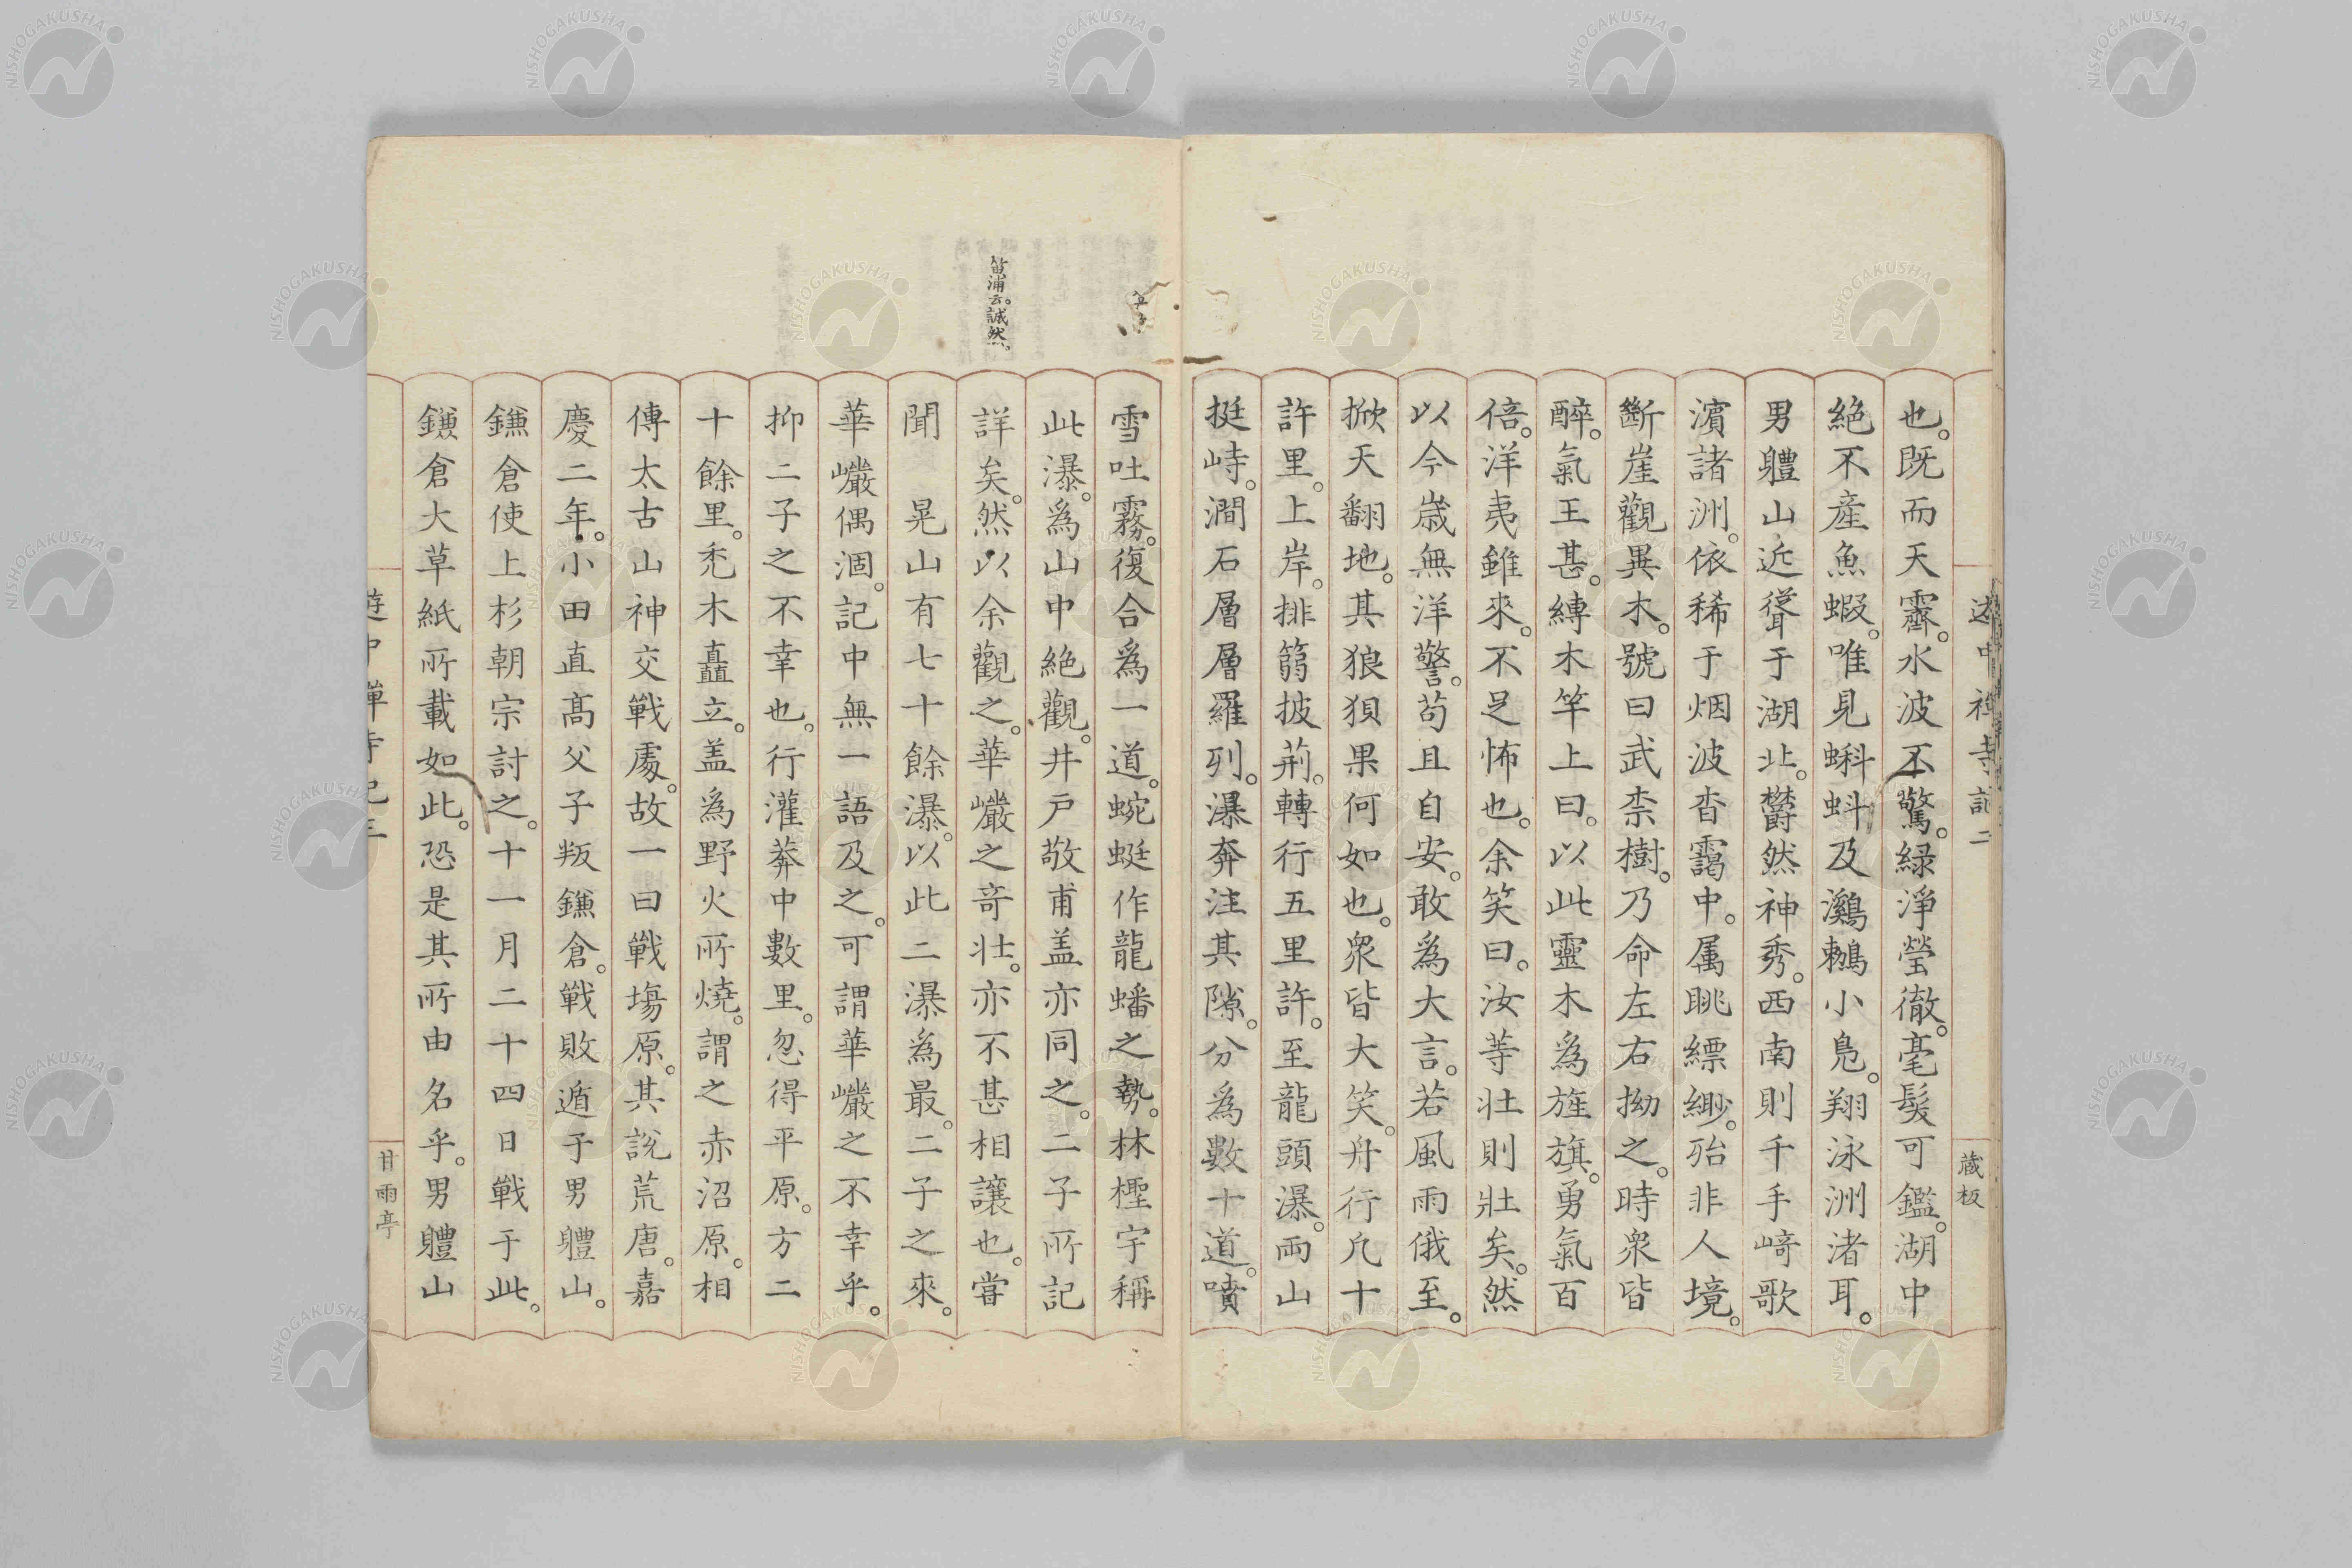 也。既而天霽。水波不驚。緑淨瑩徹。毫髮可鑑。湖中
絶不産魚蝦。唯見蝌蚪及鸂鶒小鳧。翔泳洲渚耳。
男軆山近聳于湖北。欝然神秀。西南則千手﨑歌
濵諸洲。依稀于烟波杳靄中。属眺縹緲。殆非人境。
斷崖觀異木。號曰武柰樹。乃命左右拗之。時衆皆
醉。氣王甚。縛木竿上曰。以此靈木為旌旗。勇氣百
倍。洋夷雖來。不足怖也。余笑曰。汝等壮則壯矣。然
以今歳無洋警。苟且自安。敢為大言。若風雨俄至。
掀天翻地。其狼狽果何如也。衆皆大笑。舟行凢十
許里。上岸。排篛披荊。轉行五里許。至龍頭瀑。両山
挺峙。澗石層層羅列。瀑奔注其隙。分為數十道。噴
雪吐霧。復合為一道。蜿蜒作龍蟠之勢。林檉宇稱
此瀑。為山中絶觀。井戸敬甫盖亦同之。二子所記
詳矣。然以余觀之。華巖之竒壮。亦不甚相讓也。嘗
聞晃山有七十餘瀑。以此二瀑為最。二子之來。
華巖偶涸。記中無一語及之。可謂華巖之不幸乎。
抑二子之不幸也。行灌莽中數里。忽得平原。方二
十餘里。禿木矗立。盖為野火所燒。謂之赤沼原。相
傳太古山神交戰處。故一曰戰塲原。其説荒唐。嘉
慶二年。小田直髙父子叛鎌倉。戰敗遁于男軆山。
鎌倉使上杉朝宗討之。十一月二十四日戰于此。
鎌倉大草紙所載如此。恐是其所由名乎。男軆山
笛浦云。誠然。
中禅寺記二
蔵板
遊中禅寺記三
甘雨亭
NISHOGAKUSHA